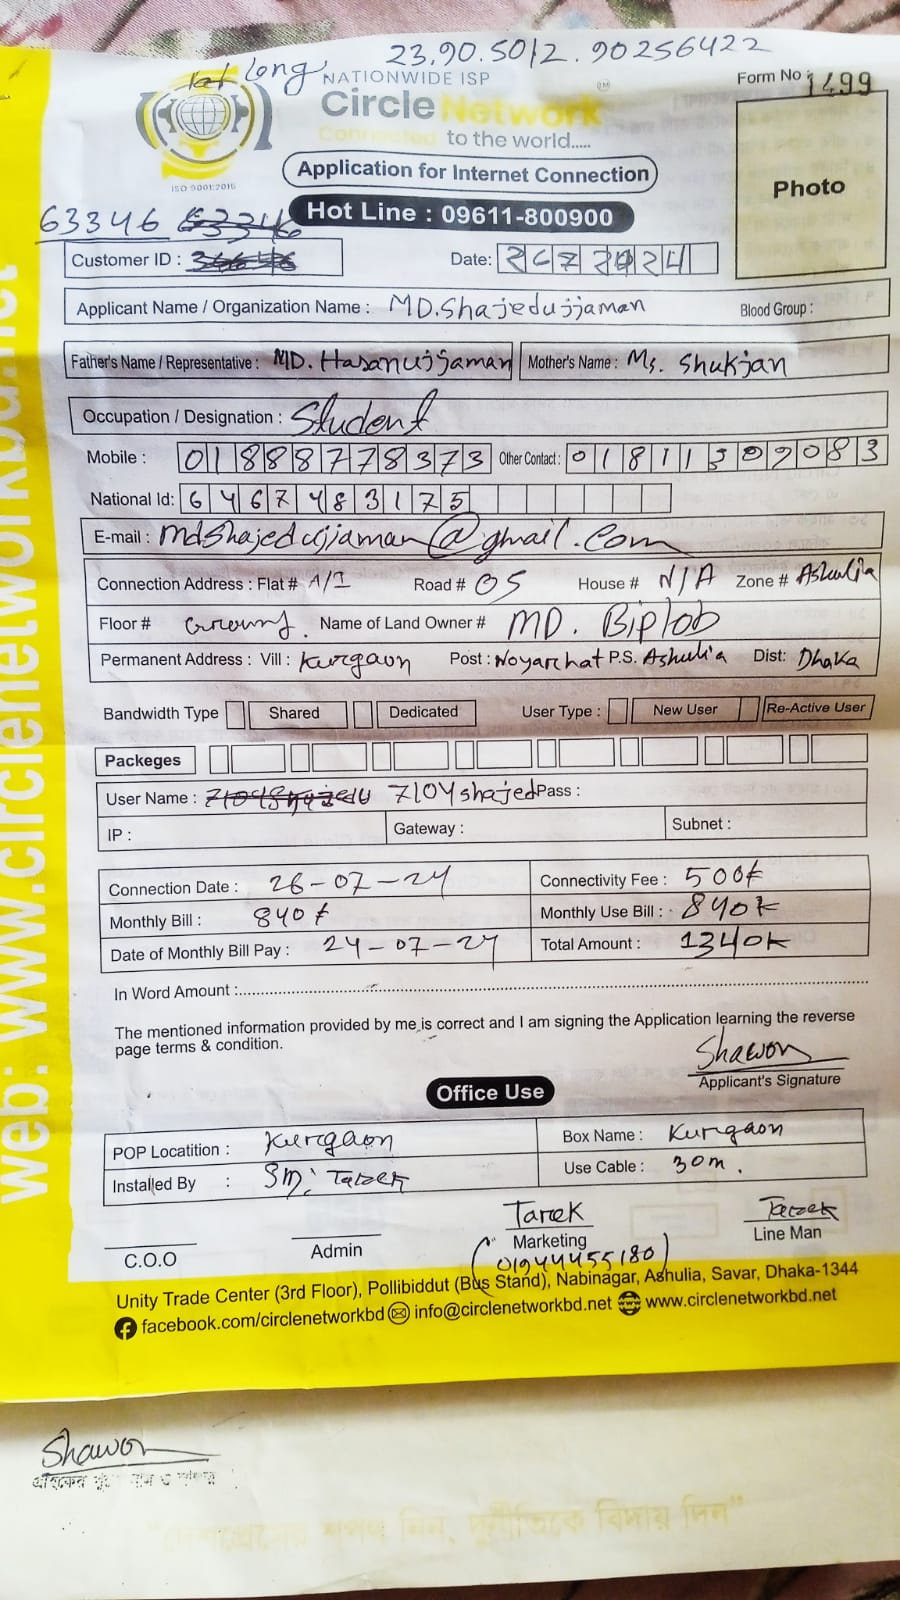 23.90.5012.90256422
Lat Long
NATIONWIDE ISP
Form No : 1499
Circle Network
Connected to the world.....
ISO 9001:2015
Application for Internet Connection
Photo
Hot Line : 09611-800900
63346
Customer ID :
Date: 2672024
Applicant Name / Organization Name : MD.Shajedujjaman Blood Group :
Father's Name / Representative : MD. Hasanujjaman Mother's Name : Ms. Shukjan
Occupation / Designation : Student
Mobile : 01888778373 Other Contact : 01811309083
National Id: 6467483175
E-mail : mdshajedujjaman@gmail.com
Connection Address : Flat # A/1 Road # 05 House # N/A Zone # Ashulia
Floor # Ground. Name of Land Owner # MD. Biplob
Permanent Address : Vill : Kurgaon Post : Noyarchat P.S. Ashulia Dist: Dhaka
Bandwidth Type Shared Dedicated User Type : New User Re-Active User
Packeges
User Name : 7104shajed Pass :
IP : Gateway : Subnet :
Connection Date : 26-07-24 Connectivity Fee : 500৳
Monthly Bill : 840৳ Monthly Use Bill : 840৳
Date of Monthly Bill Pay : 24-07-24 Total Amount : 1340৳
In Word Amount :
The mentioned information provided by me is correct and I am signing the Application learning the reverse
page terms & condition.
Shawon
Applicant's Signature
Office Use
POP Locatition : Kurgaon Box Name : Kurgaon
Installed By : SM: Tarek Use Cable : 30m.
Tarek Tarek
C.O.O Admin Marketing Line Man
(01944455180)
Unity Trade Center (3rd Floor), Pollibiddut (Bus Stand), Nabinagar, Ashulia, Savar, Dhaka-1344
facebook.com/circlenetworkbd info@circlenetworkbd.net www.circlenetworkbd.net
web: www.circlenetworkbd.net
Shawon
গ্রাহকের নাম ও স্বাক্ষর
"দেশপ্রেমের শপথ নিন, দুর্নীতিকে বিদায় দিন"